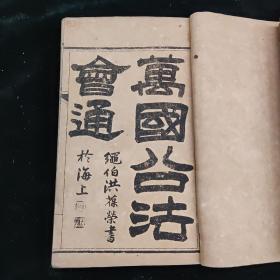 萬國公法
會通
繩伯洪葆榮書
於海上